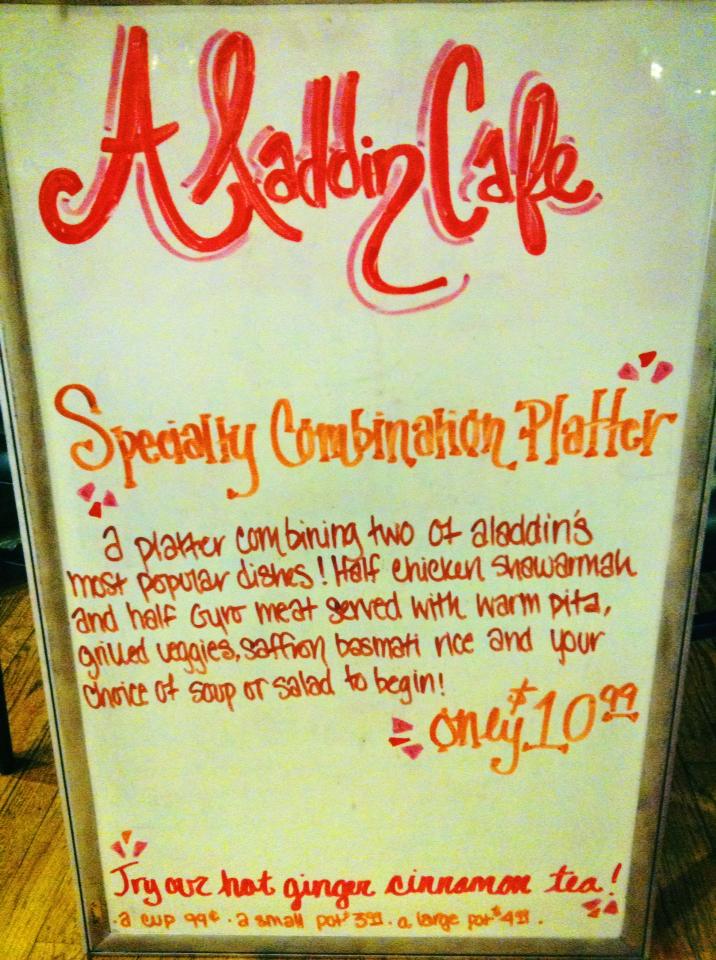 Aladdin Cafe
Specialty Combination Platter
a platter combining two of aladdin's
most popular dishes! Half chicken shawarmah
and half Gyro meat served with warm pita,
grilled veggies, saffron basmati rice and your
choice of soup or salad to begin!
only $10 99
Try our hot ginger cinnamon tea!
· a cup 99¢ · a small pot $3 99 · a large pot $4 99 ·